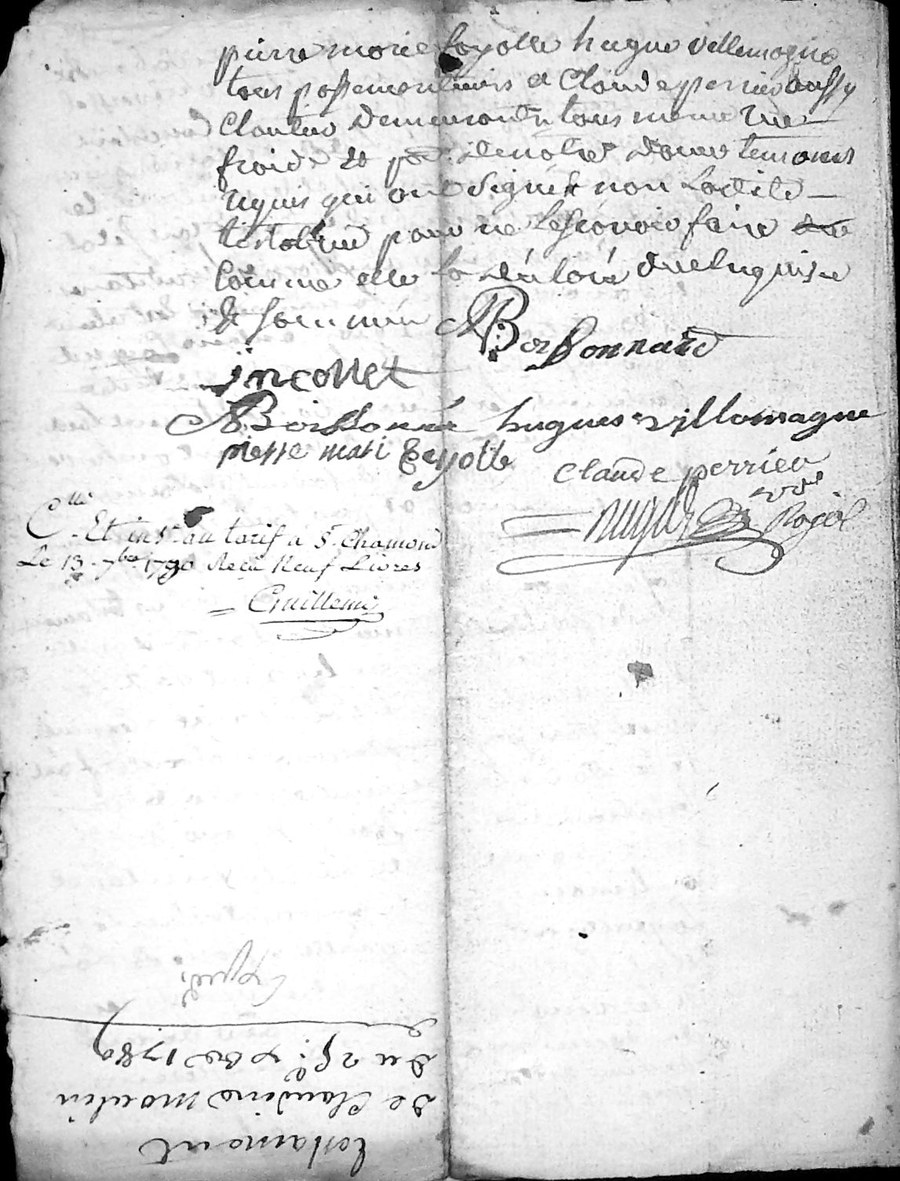 pierre marie fayolle hugue villemagne
tous passementiers et Claude perrier aussy
cloutier demeurants tous meme rue
froide et par. de notre dame temoins
requis qui ont signé et non ladite
testatrice pour ne le scavoir faire
comme elle l'a declaré duement requise
et sommée Boissonnard
jincottet
Boissonné hugues villomagne
pierre mari Feyolle
Claude perrier
Rojol
C.lle Et ins.é au tarif a S.t Chamond
Le 13 7bre 1790 Reçu Neuf Livres
Guillemi
Expedi.
testament
de Claudine moulin
du 25e 7bre 1789